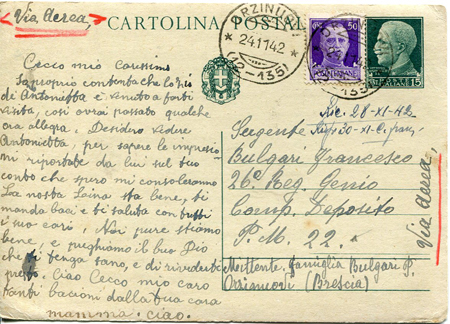 Via Aerea,
CARTOLINA POSTAL
ORZINU
24.11.42
(2-135)
50
15
Cecco mio carissimo
Sa proprio contenta che lo zio
di Antonietta è venuto a farti
visita, così avrai passato qualche
ora allegra. Desidero vedere
Antonietta, per sapere le impressio-
ni riportate da lui sul tuo
conto che spero mi consoleranno
La nostra Laina sta bene, ti
manda baci e ti saluta con tutti
i suoi cari, Noi pure stiamo
bene, e preghiamo il buo Dio
che ti tenga sano, e di rivederti
presto. Ciao Cecco mio caro
tanti bacioni dalla tua cara
mamma. ciao.
Ric. 28-XI-42
30-XI-
Sergente
Bulgari Francesco
26° Reg. Genio
Comp. Deposito
P. M. 22.
Via Aerea,
Mittente, famiglia Bulgari P.
Orzinuovi (Brescia)